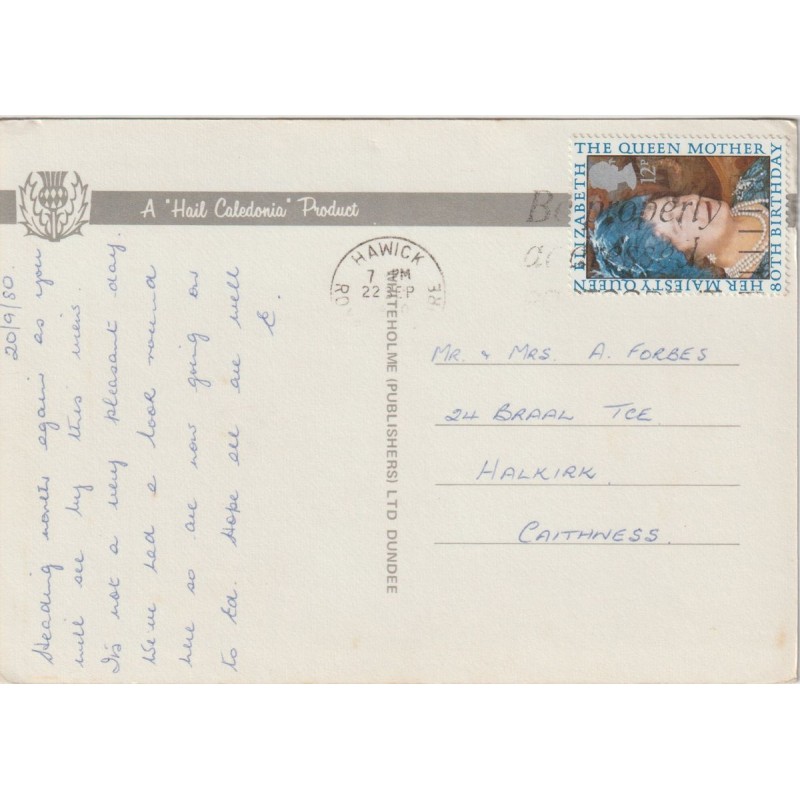 A "Hail Caledonia" Product
20/9/80.
Heading north again as you
will see by this view.
It's not a very pleasant day.
We've had a look round
here so are now going on
to Ed. Hope all are well
E.
WHITEHOLME (PUBLISHERS) LTD DUNDEE
HAWICK
7 PM
22 SEP
RO
RE
Be properly
ELIZABETH THE QUEEN MOTHER
80TH BIRTHDAY
HER MAJESTY QUEEN
12P
MR. & MRS. A. FORBES
24 BRAAL TCE
HALKIRK
CAITHNESS.